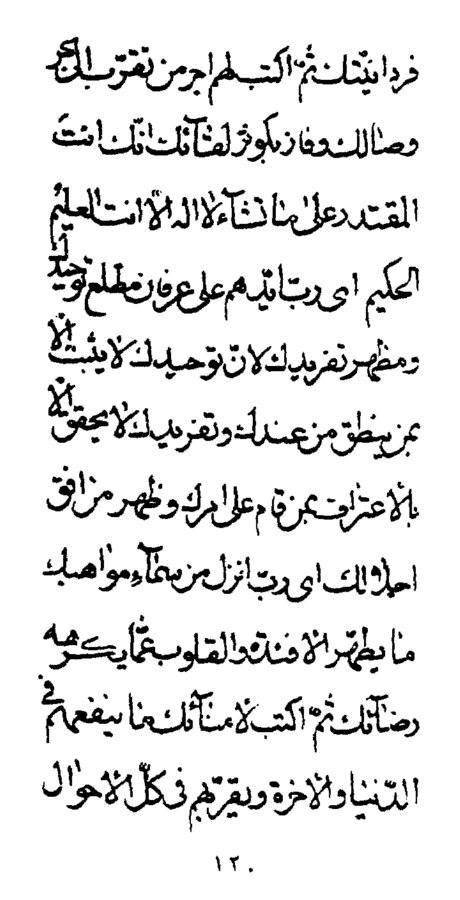 فردانيّتك ثمّ اكتب لهم اجر من تقرّب الى بحر
وصالك و فاز بكوثر لقآئك انّك انت
المقتدر على ما تشآء لا اله الّا انت العليم
الحكيم اى ربّ ايّدهم على عرفان مطلع توحيدك
و مظهر تفريدك لانّ توحيدك لا يثبت الّا
بمن ينطق من عندك و تفريدك لا يحقّق الّا
بالاعتراف بمن قام على امرك و ظهر من افق
اجلالك اى ربّ انزل من سمآء مواهبك
ما يطهّر الافئدة و القلوب عمّا يكرهه
رضآئك ثمّ اكتب لامنآئك ما ينفعهم فى
الدّنيا و الاخرة و يقرّبهم فى كلّ الاحوال
١٢٠